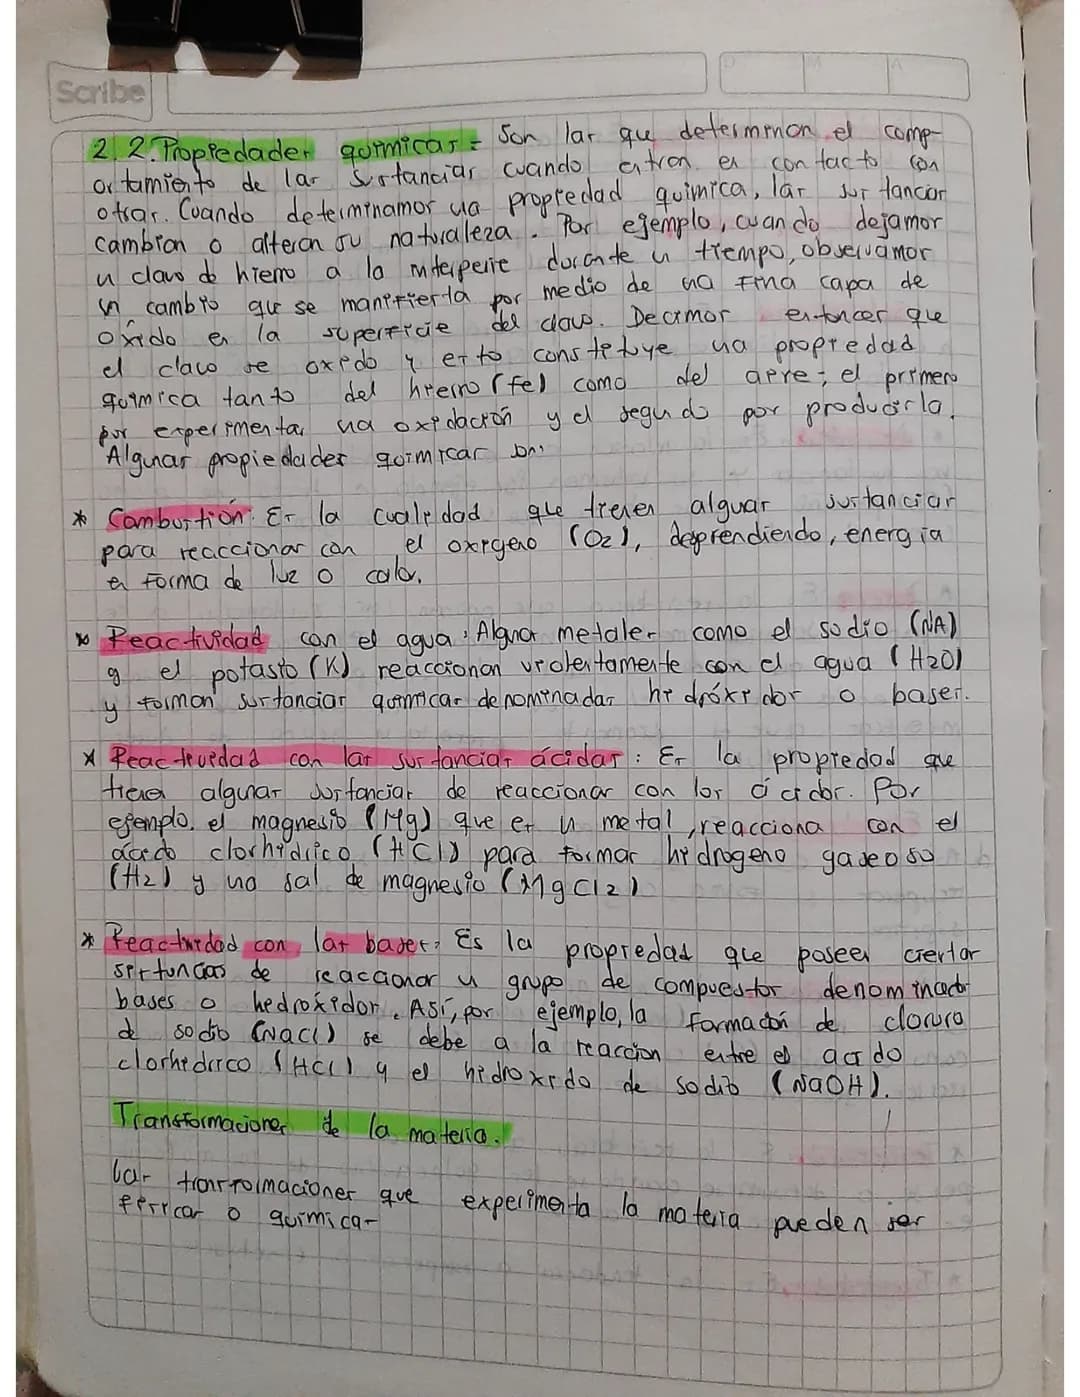 Scribe
2.2. Propiedades químicas = Son las que determinan el comp-
ortamiento de las sustancias cuando entran en contacto con
otras. Cuando determinamos una propiedad química, las sustancias
cambian o alteran su naturaleza. Por ejemplo, cuando dejamos
un clavo de hierro a la interperie durante un tiempo, observamos
un cambio que se manifiesta por medio de una fina capa de
óxido en la superficie del clavo. Decimos entonces que
el clavo se oxido y esto constituye una propiedad
química tanto del hierro (fe) como del aire; el primero
por experimentar una oxidación y el segundo por producirla.
Algunas propiedades químicas son:
* Combustión: Es la cualidad que tienen algunas sustancias
para reaccionar con el oxigeno (O2), desprendiendo, energia
en forma de luz o calor.
* Reactividad con el agua: Algunos metales como el sodio (NA)
y el potasio (K) reaccionan violentamente con el agua (H2O)
y forman sustancias químicas denominadas hidróxidos o bases.
* Reactividad con las sustancias ácidas: Es la propiedad que
tienen algunas sustancias de reaccionar con los ácidos. Por
ejemplo, el magnesio (Mg) que es un metal, reacciona con el
ácido clorhídrico (HCl) para formar hidrogeno gaseoso
(H2) y una sal de magnesio (MgCl2)
* Reactividad con las bases: Es la propiedad que poseen ciertas
sustancias de reaccionar un grupo de compuestos denominados
bases o hidroxidos. Así, por ejemplo, la formación de cloruro
de sodio (NaCl) se debe a la reaccion entre el acido
clorhidrico (HCl) y el hidroxido de sodio (NaOH).
Transformaciones de la materia.
Las transformaciones que experimenta la materia pueden ser
físicas o químicas